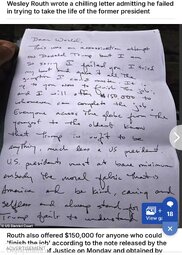 Wesley Routh wrote a chilling letter admitting he failed
in trying to take the life of the former president
Dear World,
This was an assassination attempt
on Donald Trump but I am
so sorry I failed you. I tried
my best and gave it all the
to finish the job;
and I will offer $150,000 to
whomever can complete the job.
Everyone across the globe from the
youngest to the oldest knows
that Trump is unfit to be
anything, much less a US president
U.S. presidents must at bare minimum
embody the moral fabric that is
America and be kind, caring and
selfless and always stand for
Trump fails to understand
US District Court
View ga
18
Routh also offered $150,000 for anyone who could
'finish the job' according to the note released by the
ADVERTISEMENT
of Justice on Monday and obtained by